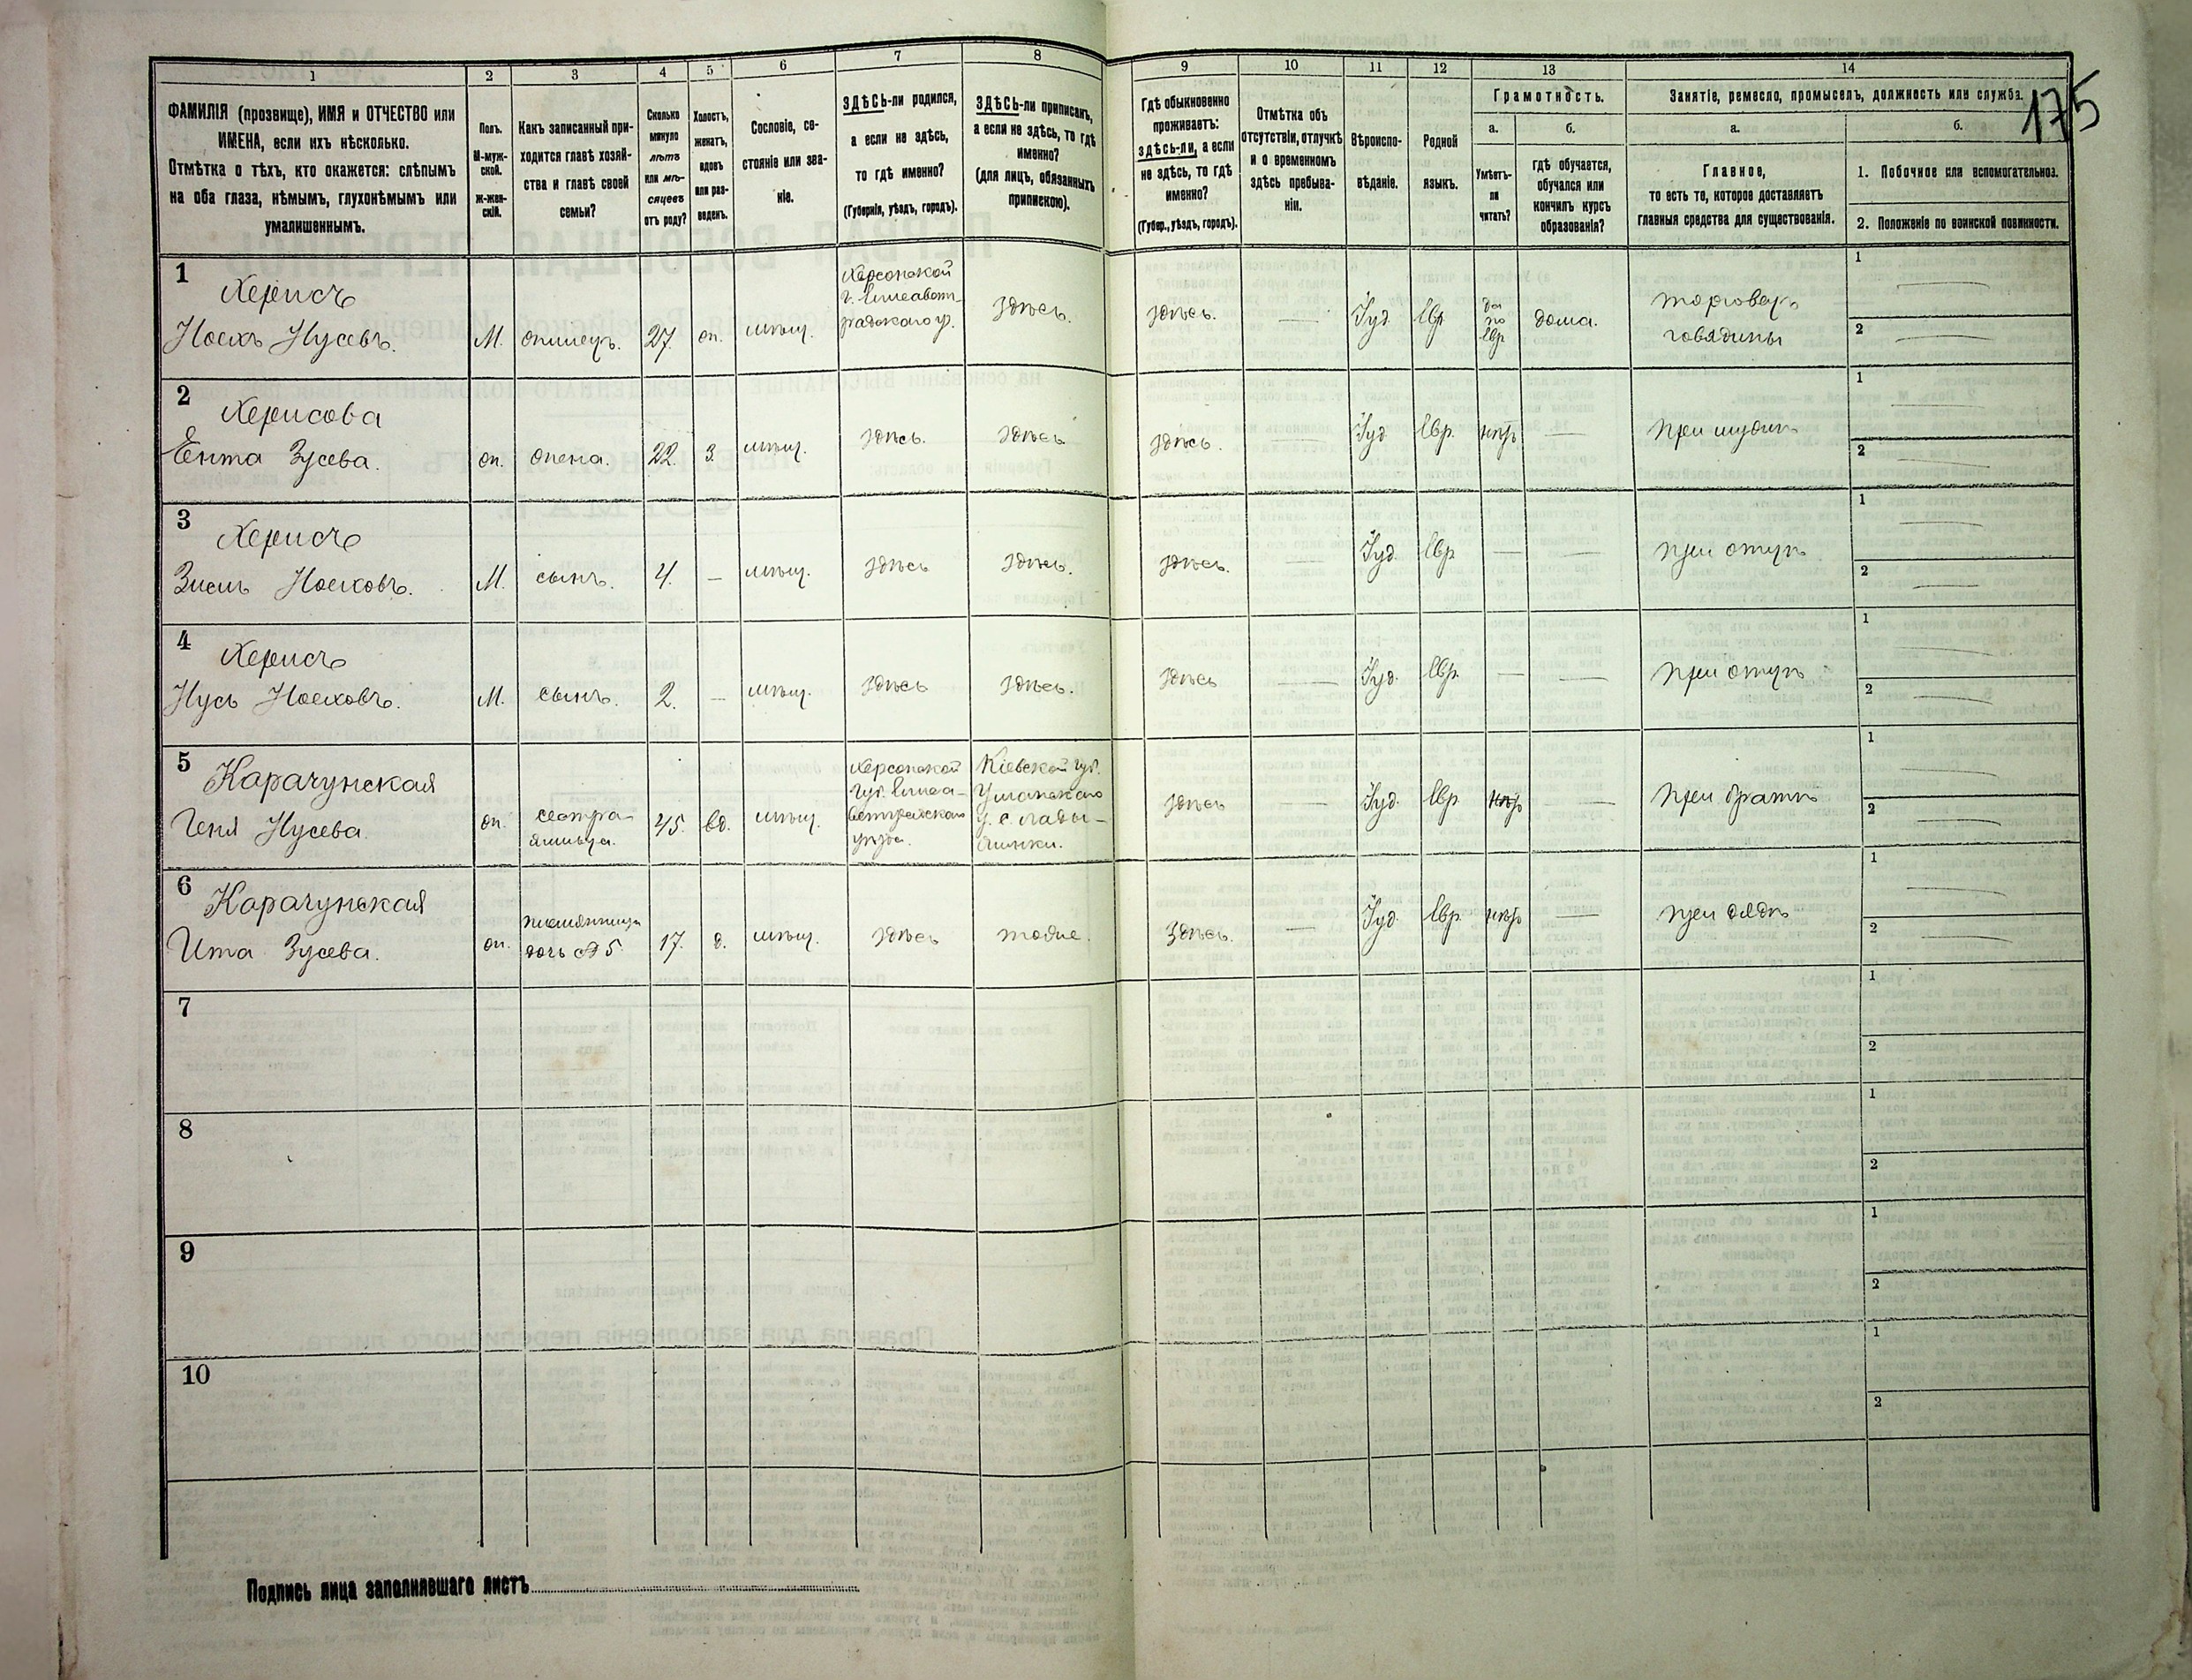 1
2
3
4
5
6
7
8
9
10
11
12
13
14
175
ФАМИЛІЯ (прозвище), ИМЯ и ОТЧЕСТВО или
ИМЕНА, если ихъ нѣсколько.
Отмѣтка о тѣхъ, кто окажется: слѣпымъ
на оба глаза, нѣмымъ, глухонѣмымъ или
умалишеннымъ.
Полъ.
М-муж-
ской.
ж-жен-
скій.
Какъ записанный при-
ходится главѣ хозяй-
ства и главѣ своей
семьи?
Сколько
минуло
лѣтъ
или мѣ-
сяцевъ
отъ роду?
Холостъ,
женатъ,
вдовъ
или раз-
веденъ.
Сословіе, со-
стояніе или зва-
ніе.
ЗДѢСЬ-ли родился,
а если не здѣсь,
то гдѣ именно?
(Губернія, уѣздъ, городъ).
ЗДѢСЬ-ли приписанъ,
а если не здѣсь, то гдѣ
именно?
(для лицъ, обязанныхъ
припискою).
Гдѣ обыкновенно
проживаетъ:
здѣсь-ли, а если
не здѣсь, то гдѣ
именно?
(Губер., уѣздъ, городъ).
Отмѣтка объ
отсутствіи, отлучкѣ
и о временномъ
здѣсь пребыва-
ніи.
Вѣроиспо-
вѣданіе.
Родной
языкъ.
Грамотность.
а.
б.
Умѣетъ-
ли
читать?
гдѣ обучается,
обучался или
кончилъ курсъ
образованія?
Занятіе, ремесло, промыселъ, должность или служба.
а.
б.
Главное,
то есть то, которое доставляетъ
главныя средства для существованія.
1. Побочное или вспомогательное.
2. Положеніе по воинской повинности.
1
Херисъ
Ноехъ Нусевъ.
М.
27.
мѣщ.
Херсонской
г. Елисавет-
градскаго у.
здѣсь.
здѣсь.
—
Іуд.
Евр.
да
по
евр
дома.
торговецъ
говядины
1
—
2
—
2
Херисова
Ента Зусева.
жена.
22.
З.
мѣщ.
здѣсь.
здѣсь
здѣсь.
—
Іуд
Евр.
нѣтъ
—
при мужѣ
1
—
2
—
3
Херисъ
Зисль Ноеховъ.
М.
сынъ.
4.
—
мѣщ.
здѣсь
здѣсь.
здѣсь.
—
Іуд.
Евр.
—
—
при отцѣ
1
—
2
—
4
Херисъ
Нусь Ноеховъ.
М.
сынъ.
2.
—
мѣщ.
здѣсь
здѣсь.
здѣсь
—
Іуд.
Евр.
—
—
при отцѣ
1
—
2
—
5
Карачунская
Геня Нусева.
ж.
сестра
45.
вд.
мѣщ.
Херсонской
губ. Елиса-
ветградскаго
уѣзда.
Кіевской губ.
Уманскаго
у. с. Лады-
жинки.
здѣсь
—
Іуд.
Евр.
нѣтъ
—
при братѣ
1
—
2
—
6
Карачунская
Ита Зусева.
ж.
племянница
дочь №5.
17.
д.
мѣщ.
здѣсь
тоже.
Здѣсь.
—
Іуд.
Евр.
нѣтъ
—
при дядѣ
1
—
2
—
7
1
2
8
1
2
9
1
2
10
1
2
Подпись лица заполнявшаго листъ